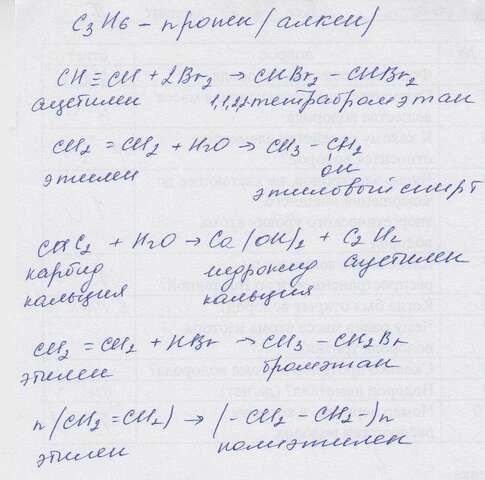 C3H6 – пропен (алкен)
CH≡CH + 2Br2 → CHBr2 – CHBr2
ацетилен 1,1,2,2-тетрабромэтан
CH2 = CH2 + H2O → CH3 – CH2
OH
этилен этиловый спирт
CaC2 + H2O → Ca(OH)2 + C2H2
карбид гидроксид ацетилен
кальция кальция
CH2 = CH2 + HBr → CH3 – CH2Br
этилен бромэтан
n(CH2 = CH2) → (-CH2 – CH2-)n
этилен полиэтилен